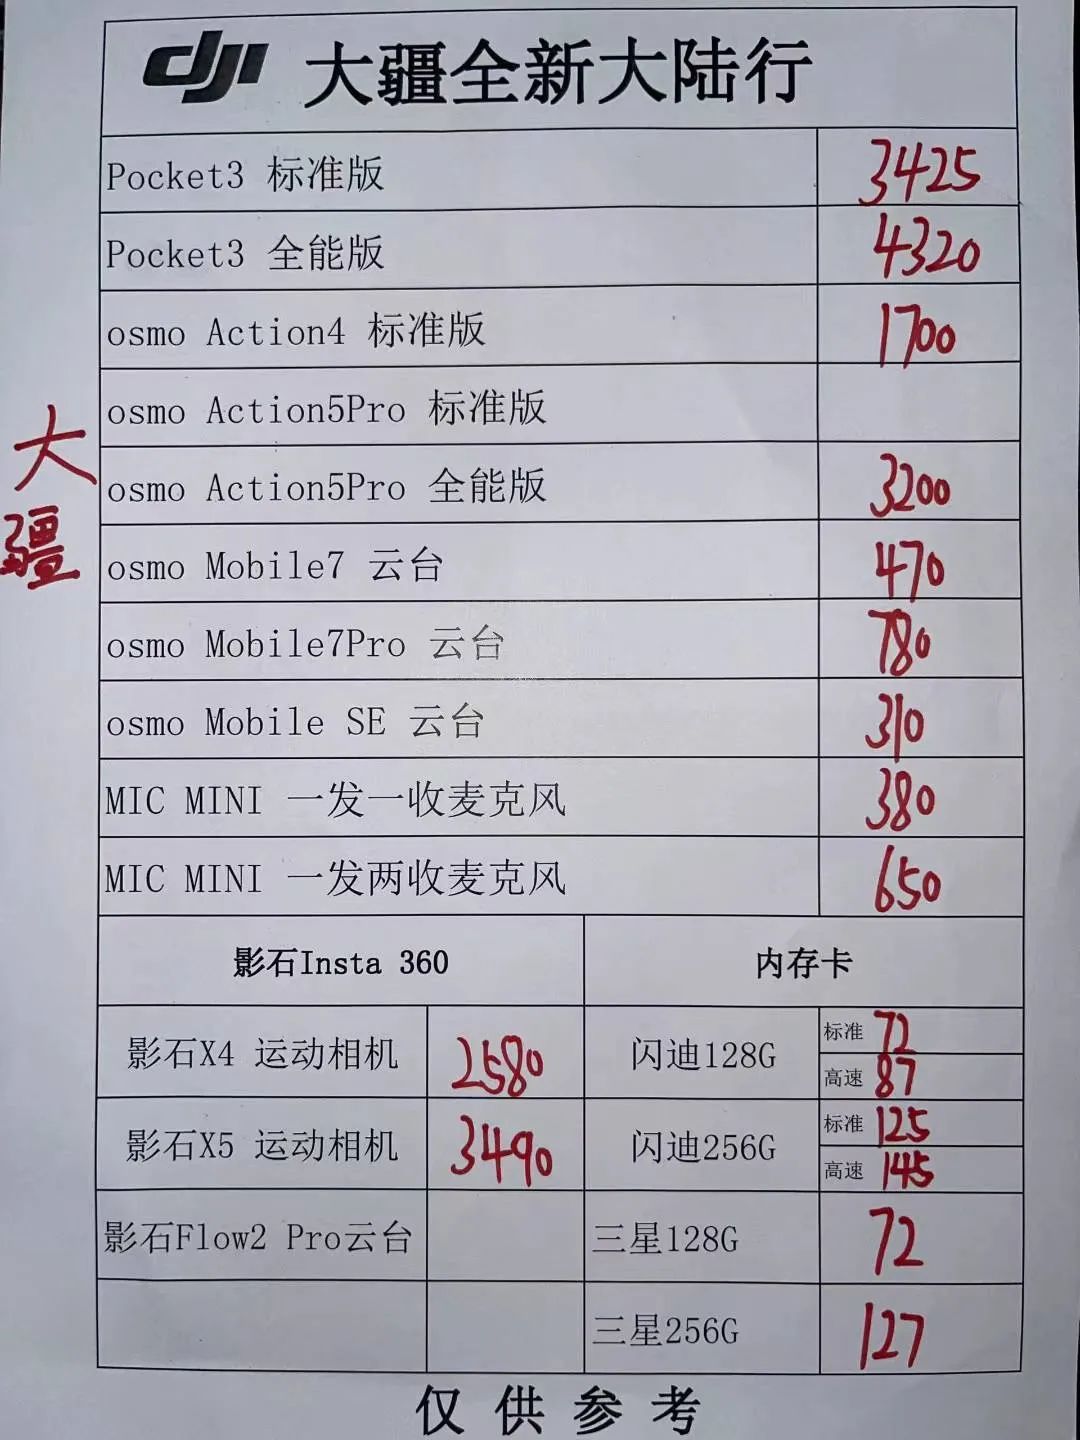 dji 大疆全新大陆行
Pocket3 标准版 3425
Pocket3 全能版 4320
osmo Action4 标准版 1700
osmo Action5Pro 标准版
大疆
osmo Action5Pro 全能版 3200
osmo Mobile7 云台 470
osmo Mobile7Pro 云台 780
osmo Mobile SE 云台 310
MIC MINI 一发一收麦克风 380
MIC MINI 一发两收麦克风 650
影石Insta 360 内存卡
影石X4 运动相机 2580 闪迪128G 标准 72
高速 87
影石X5 运动相机 3490 闪迪256G 标准 125
高速 145
影石Flow2 Pro云台 三星128G 72
三星256G 127
仅供参考